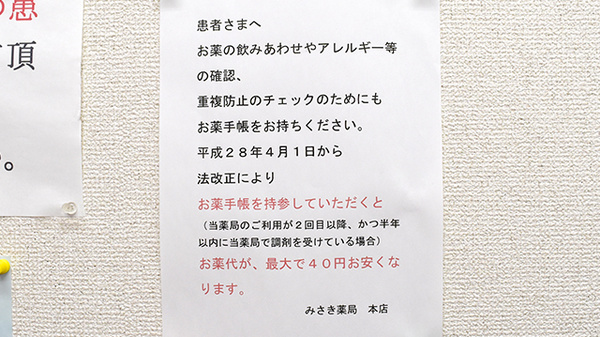 の患
頂
。
患者さまへ
お薬の飲みあわせやアレルギー等
の確認、
重複防止のチェックのためにも
お薬手帳をお持ちください。
平成２８年４月１日から
法改正により
お薬手帳を持参していただくと
（当薬局のご利用が２回目以降、かつ半年
以内に当薬局で調剤を受けている場合）
お薬代が、最大で４０円お安くな
ります。
みさき薬局　本店